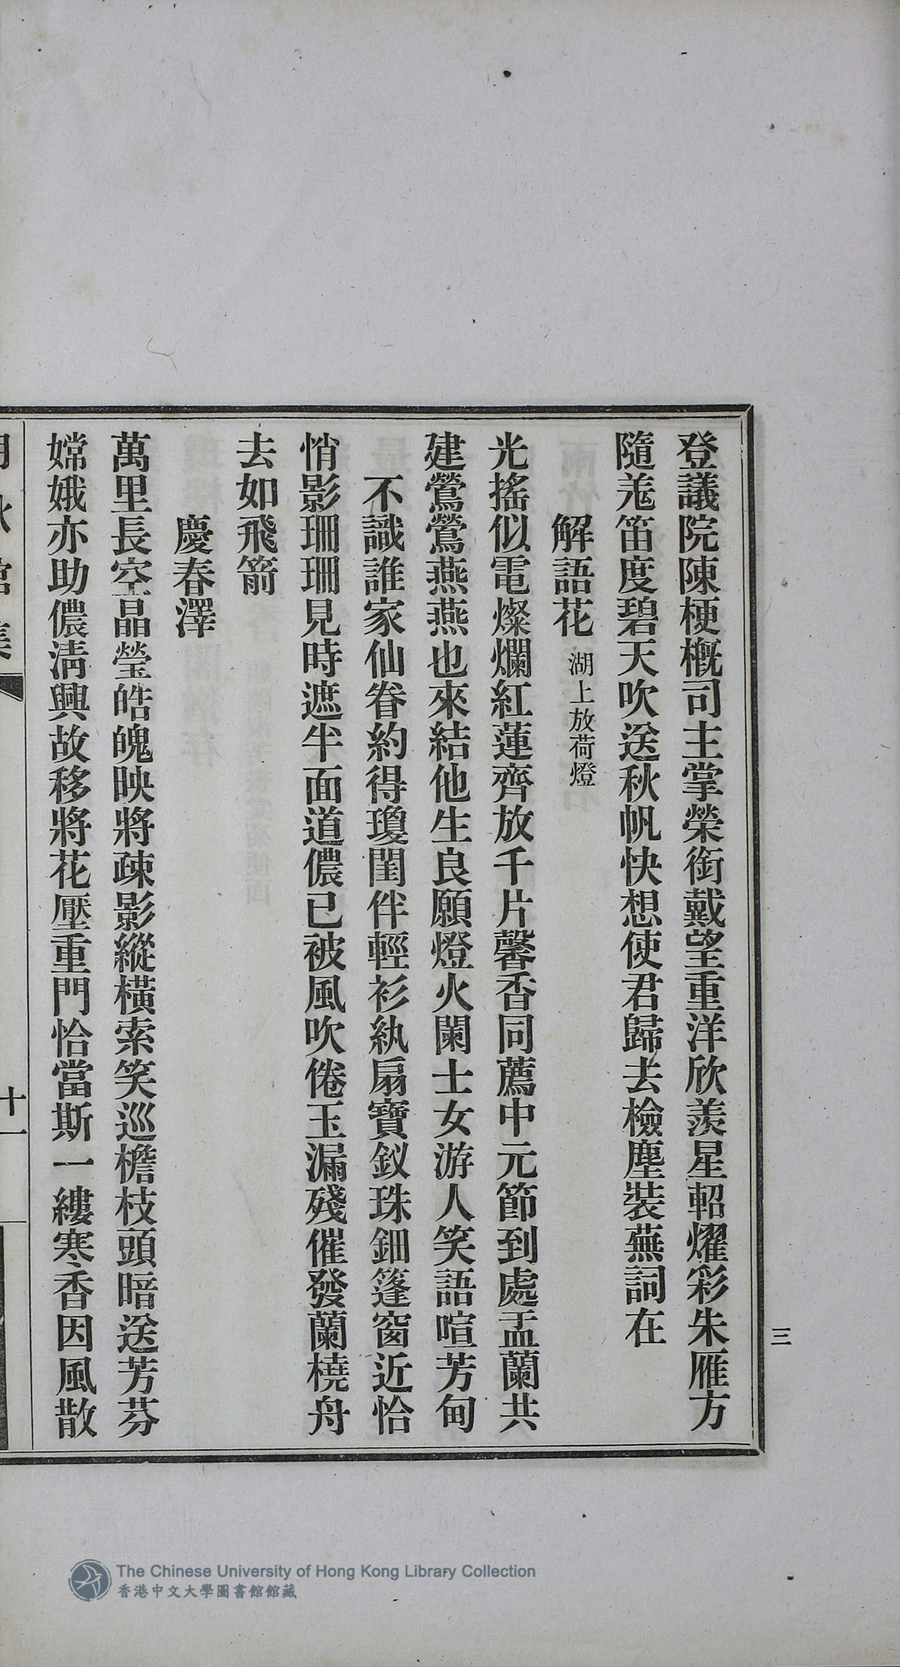 登議院陳梗概司主掌榮銜戴望重洋欣羨星軺燿彩朱雁方
隨羗笛度碧天吹送秋帆快想使君歸去檢塵裝蕪詞在
解語花 湖上放荷燈
光搖似電燦爛紅蓮齊放千片馨香同薦中元節到處盂蘭共
建鶯鶯燕燕也來結他生良願燈火闌士女游人笑語喧芳甸
不識誰家仙眷約得瓊閨伴輕衫紈扇寶釵珠鈿篷窗近恰
悄影珊珊見時遮半面道儂已被風吹倦玉漏殘催發蘭橈舟
去如飛箭
慶春澤
萬里長空晶瑩皓魄映將疎影縱橫索笑巡檐枝頭暗送芳芬
嫦娥亦助儂淸興故移將花壓重門恰當斯一縷寒香因風散
十一
三
The Chinese University of Hong Kong Library Collection
香港中文大學圖書館館藏